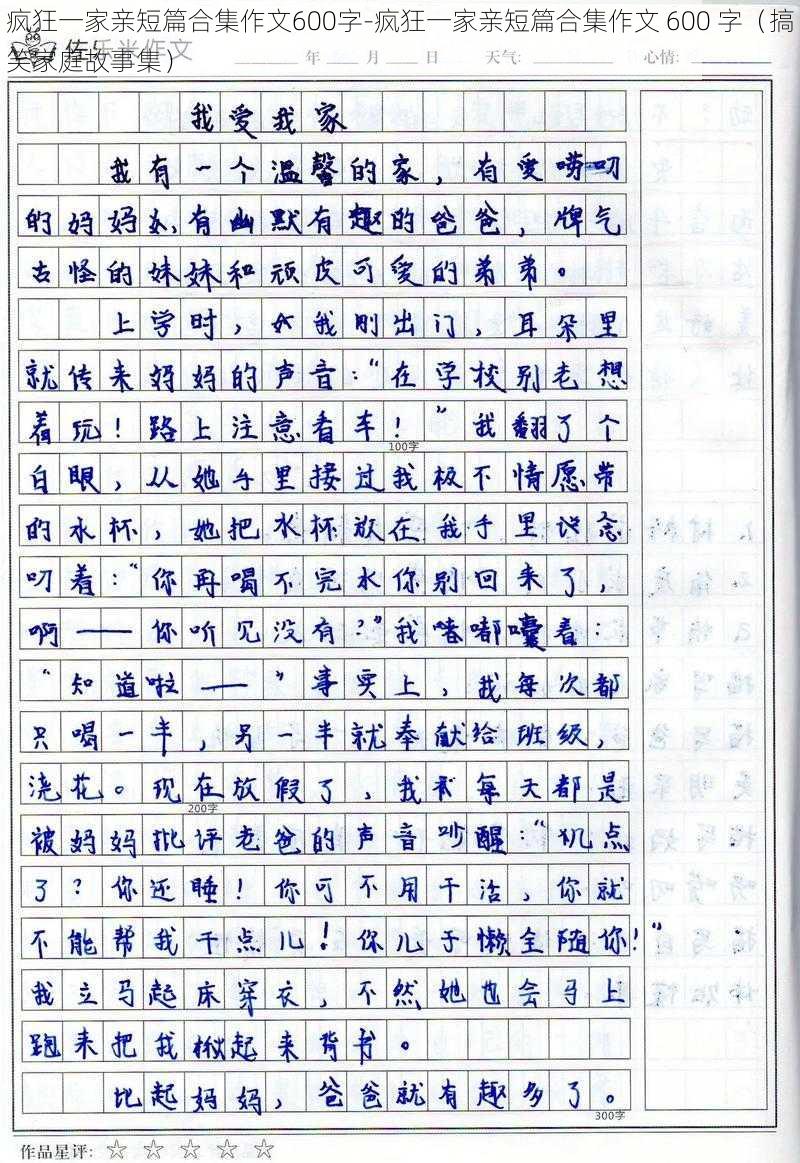 疯狂一家亲短篇合集作文600字-疯狂一家亲短篇合集作文 600 字（搞
笑家庭故事集）
佐乐米作文
年 月 日 天气: 心情:
我爱我家
我有一个温馨的家，有爱唠叨
的妈妈，有幽默有趣的爸爸，脾气
古怪的妹妹和顽皮可爱的弟弟。
上学时，我刚出门，耳朵里
就传来妈妈的声音：“在学校别老想
着玩！路上注意看车！”我翻了个
100字
白眼，从她手里接过我极不情愿带
的水杯，她把水杯放在我手里说念
叨着：“你再喝不完水你别回来了，
啊——你听见没有？”我嘟嘟囔着：
“知道啦——”事实上，我每次都
只喝一半，另一半就奉献给班级，
浇花。现在放假了，我每天都是
200字
被妈妈批评老爸的声音吵醒：“几点
了？你还睡！你可不用干活，你就
不能帮我干点儿！你儿子懒全随你！”
我立马起床穿衣，不然她也会马上
跑来把我楸起来背书。
比起妈妈，爸爸就有趣多了。
300字
作品星评: ☆ ☆ ☆ ☆ ☆